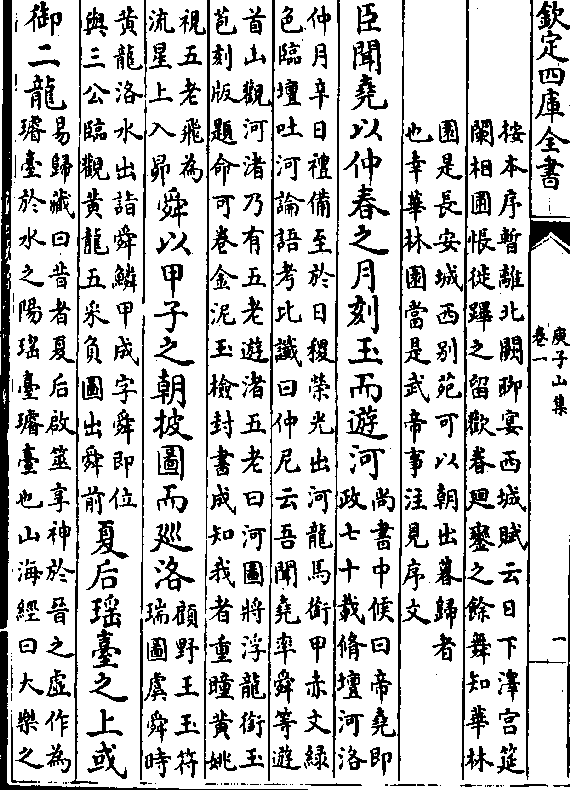 欽定四庫全書
庾子山集
卷一
一
按本序暫離北闕聊宴西城賦云日下澤宮筵
闌相圃悵徙蹕之留歡眷廻鑾之餘舞知華林
園是長安城西别苑可以朝出暮歸者
也幸華林園當是武帝事注見序文
臣聞堯以仲春之月刻玉而遊河
尚書中候曰帝堯即
政七十載脩壇河洛
仲月辛日禮備至於日稷榮光出河龍馬銜甲赤文緑
色臨壇吐河論語考比讖曰仲尼云吾聞堯率舜等遊
首山觀河渚乃有五老遊渚五老曰河圖將浮龍銜玉
苞刻版題命可卷金泥玉檢封書成知我者重瞳黄姚
視五老飛為
流星上入昴
舜以甲子之朝披圖而廵洛
顧野王玉符
瑞圖虞舜時
黄龍洛水出詣舜鱗甲成字舜即位
與三公臨觀黄龍五采負圖出舜前
夏后瑶臺之上或
御二龍
易歸藏曰昔者夏后啟筮享神於晉之虚作為
璿臺於水之陽瑶臺璿臺也山海經曰大樂之